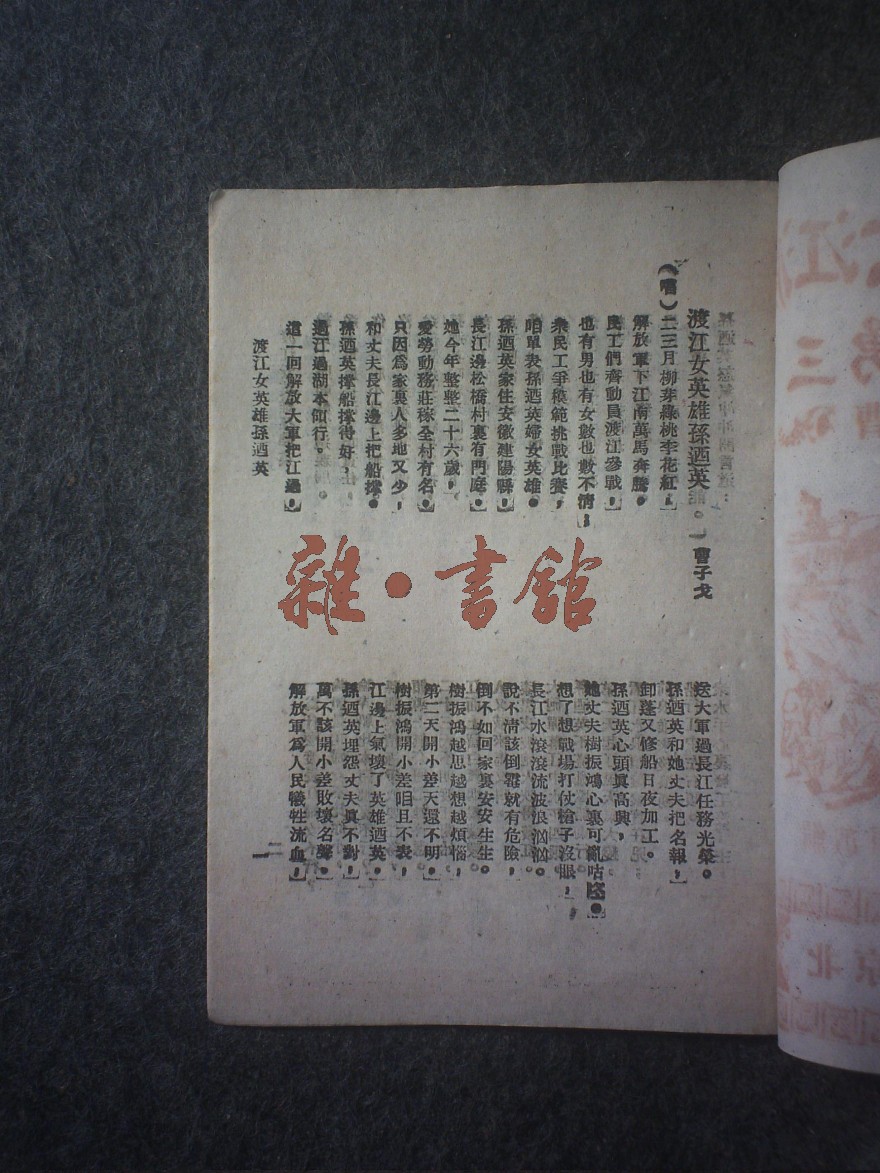 渡江女英雄孫迺英
曹子戈
(唱)二三月柳芽綠桃李花紅,
解放軍下江南萬馬奔騰。
民工們齊動員渡江參戰,
也有男也有女數也數不清;
衆民工爭模範挑戰比賽,
咱單表孫迺英婦女英雄。
孫迺英家住安徽建陽縣,
長江邊松橋村裏有門庭。
她今年整整二十六歲,
愛勞動務莊稼全村有名。
只因爲家裏人多地又少,
和丈夫長江邊上把船撐。
孫迺英撐船撐得好,
過江過湖本領行。
這一回解放大軍把江過,
送大軍過長江任務光榮。
孫迺英和她丈夫把名報,
卸蓬又修船日夜加工。
孫迺英心頭真高興,
她丈夫樹振鴻心裏可亂咕咚。
想了想戰場打仗槍子沒眼,
長江水滾滾流波浪汹汹。
說不清該倒霉就有危險,
倒不如回家裏安安生生。
樹振鴻越思越想越煩惱,
第二天開小差天還不明。
樹振鴻開小差咱且不表,
江邊上氣壞了英雄迺英。
孫迺英埋怨丈夫真不對,
萬不該開小差敗壞名聲。
解放軍爲人民犧牲流血,
渡江女英雄孫迺英
雜·書館